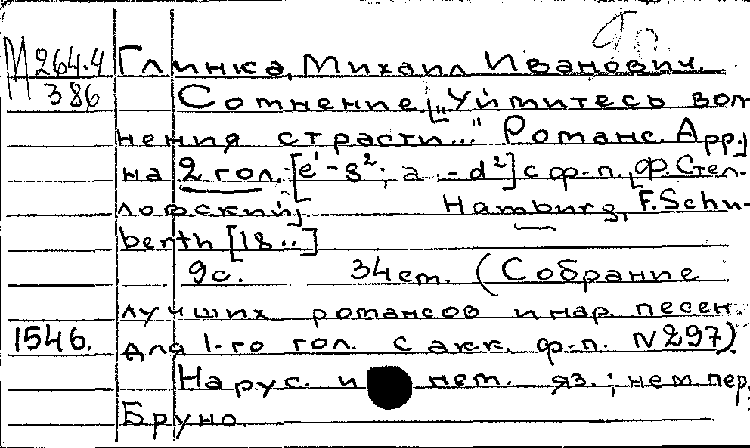 М 264.4 Глинка, Михаил Иванович.
386 Сомнение ["Уймитесь вол-
нения страсти..." Романс. Арр.]
на 2 гол. [e¹-g²; a -d²] с ф-п. [Ф. Стел-
ловский] Hamburg, F. Schu-
berth [18..]
9с. 34 cm. (Собрание
лучших романсов и нар. песен.
1546. для 1-го гол. с акк. ф-п. N 297)
На рус. и нем. яз.; нем. пер.
Бруно.